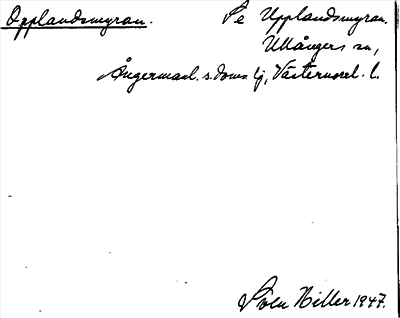 Opplandsmyran. Se Upplandsmyran.
Ullångers sn,
Ångermanl. s. doms tj, Västernorrl. l.
Sven Hiller 1947.